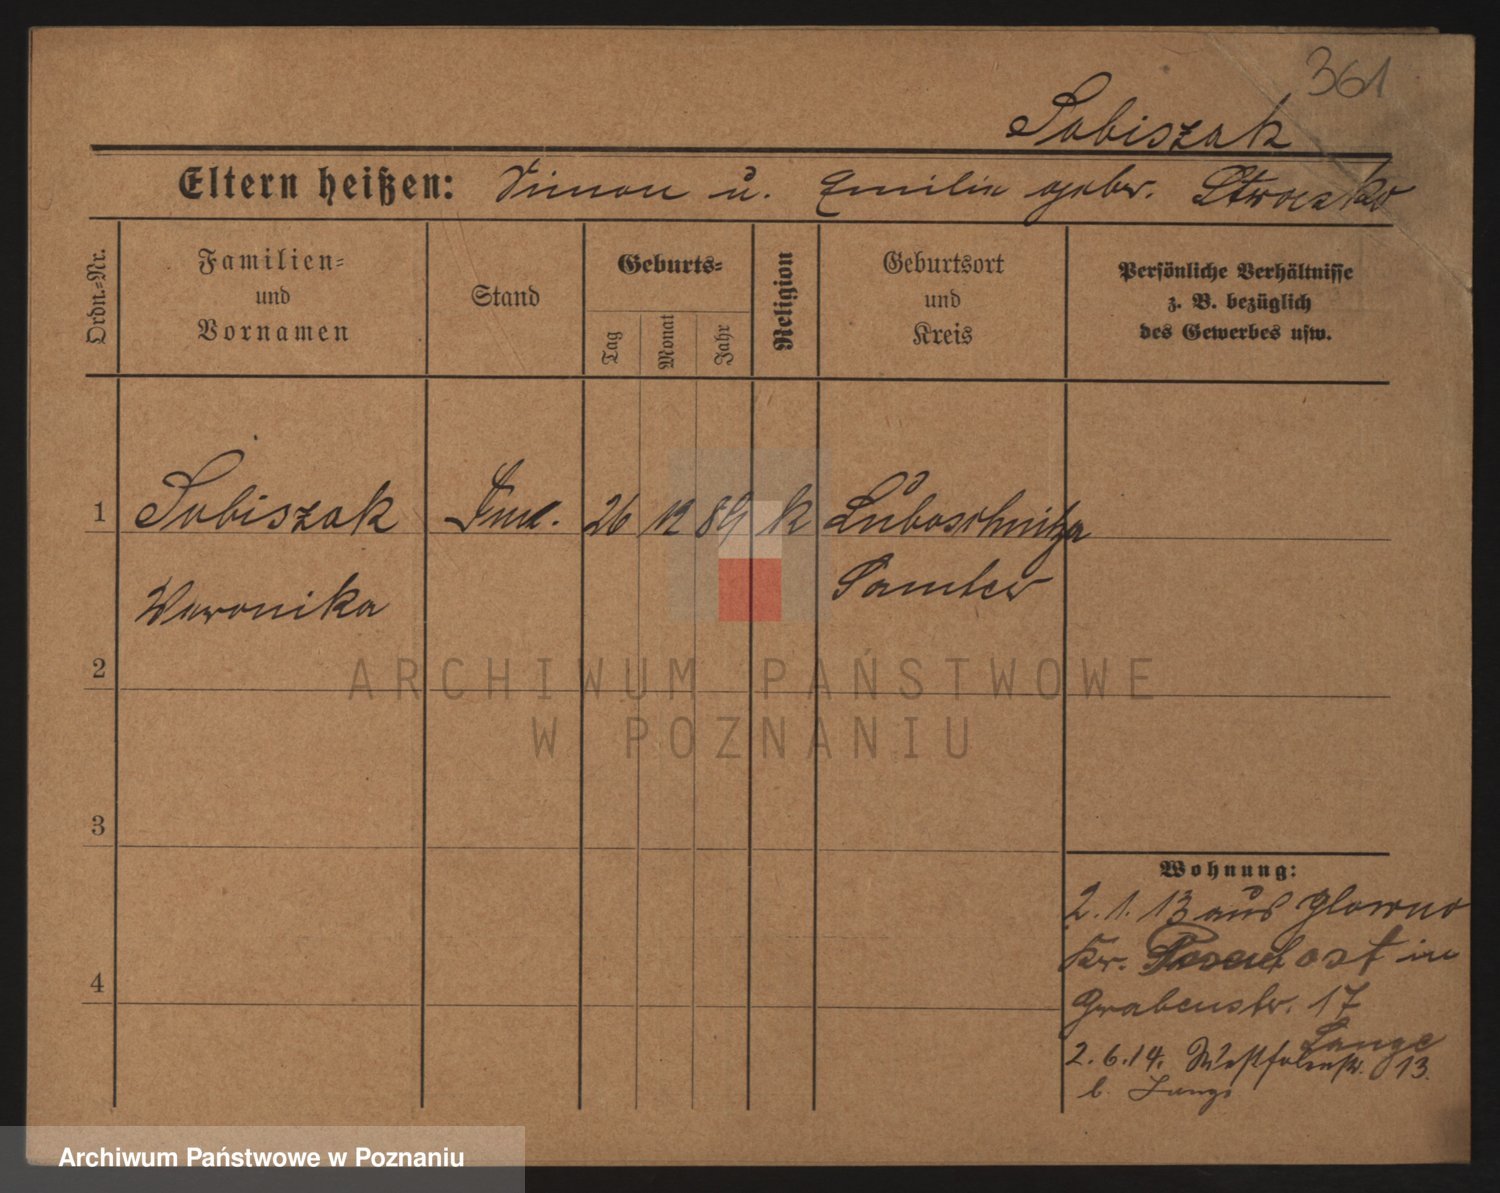 361
Sobiszak
Eltern heißen: Simon u. Emilie gebr. Stroczko
Ordn.-Nr.
Familien-
und
Vornamen
Stand
Geburts-
Tag
Monat
Jahr
Religion
Geburtsort
und
Kreis
Persönliche Verhältnisse
z. B. bezüglich
des Gewerbes usw.
1 Sobiszak 26 12 89 k Luboschnitza
Weronika Samter
2
3
4
Wohnung:
2. 1. 13 aus Glowno
Kr. Posen ost in
Grabenstr. 17
Lange
2. 6. 14. Westfalenstr. 13.
b. Lange
ARCHIWUM PAŃSTWOWE
W POZNANIU
Archiwum Państwowe w Poznaniu